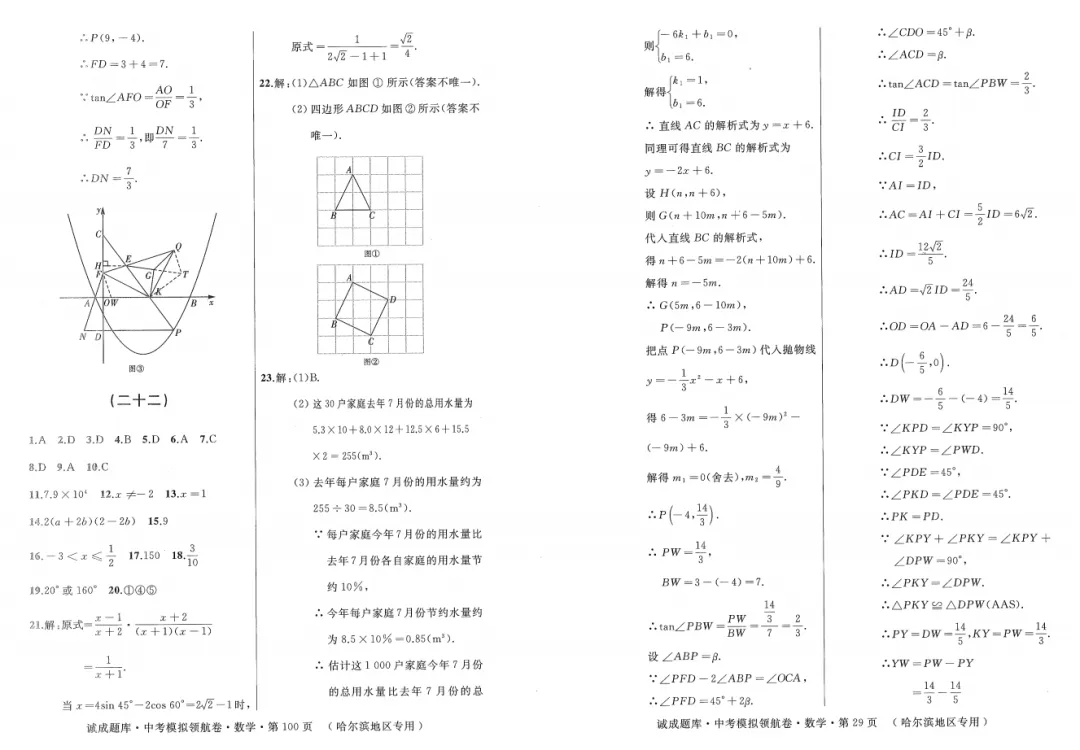 ∴P(9,-4).
∴FD=3+4=7.
∵tan∠AFO=AO/OF=1/3,
∴DN/FD=1/3,即DN/7=1/3.
∴DN=7/3.
y
C
Q
H
E
F
G
T
K
A
O
W
B
x
N
D
P
图③
(二十二)
1.A 2.D 3.D 4.B 5.D 6.A 7.C
8.D 9.A 10.C
11.7.9×10⁴ 12.x≠-2 13.x=1
14.2(a+2b)(2-2b) 15.9
16.-3<x≤1/2 17.150 18.3/10
19.20°或160° 20.①④⑤
21.解:原式=(x-1)/(x+2)·(x+2)/((x+1)(x-1))
=1/(x+1).
当x=4sin 45°-2cos 60°=2√2-1时,
原式=1/(2√2-1+1)=√2/4.
22.解:(1)△ABC如图①所示(答案不唯一).
(2)四边形ABCD如图②所示(答案不
唯一).
A
B
C
图①
A
D
B
C
图②
23.解:(1)B.
(2)这30户家庭去年7月份的总用水量为
5.3×10+8.0×12+12.5×6+15.5
×2=255(m³).
(3)去年每户家庭7月份的用水量约为
255÷30=8.5(m³).
∵每户家庭今年7月份的用水量比
去年7月份各自家庭的用水量节
约10%,
∴今年每户家庭7月份节约用水量约
为8.5×10%=0.85(m³).
∴估计这1 000户家庭今年7月份
的总用水量比去年7月份的总
诚成题库·中考模拟领航卷·数学·第100页 (哈尔滨地区专用)
则{-6k₁+b₁=0,
b₁=6.
解得{k₁=1,
b₁=6.
∴直线AC的解析式为y=x+6.
同理可得直线BC的解析式为
y=-2x+6.
设H(n,n+6),
则G(n+10m,n+6-5m).
代入直线BC的解析式,
得n+6-5m=-2(n+10m)+6.
解得n=-5m.
∴G(5m,6-10m),
P(-9m,6-3m).
把点P(-9m,6-3m)代入抛物线
y=-1/3x²-x+6,
得6-3m=-1/3×(-9m)²-
(-9m)+6.
解得m₁=0(舍去),m₂=4/9.
∴P(-4,14/3).
∴PW=14/3,
BW=3-(-4)=7.
∴tan∠PBW=PW/BW=(14/3)/7=2/3.
设∠ABP=β.
∵∠PFD-2∠ABP=∠OCA,
∴∠PFD=45°+2β.
∴∠CDO=45°+β.
∴∠ACD=β.
∴tan∠ACD=tan∠PBW=2/3.
∴ID/CI=2/3.
∴CI=3/2ID.
∵AI=ID,
∴AC=AI+CI=5/2ID=6√2.
∴ID=12√2/5.
∴AD=√2ID=24/5.
∴OD=OA-AD=6-24/5=6/5.
∴D(-6/5,0).
∴DW=-6/5-(-4)=14/5.
∵∠KPD=∠KYP=90°,
∴∠KYP=∠PWD.
∵∠PDE=45°,
∴∠PKD=∠PDE=45°.
∴PK=PD.
∵∠KPY+∠PKY=∠KPY+
∠DPW=90°,
∴∠PKY=∠DPW.
∴△PKY≌△DPW(AAS).
∴PY=DW=14/5,KY=PW=14/3.
∴YW=PW-PY
=14/3-14/5
诚成题库·中考模拟领航卷·数学·第29页 (哈尔滨地区专用)